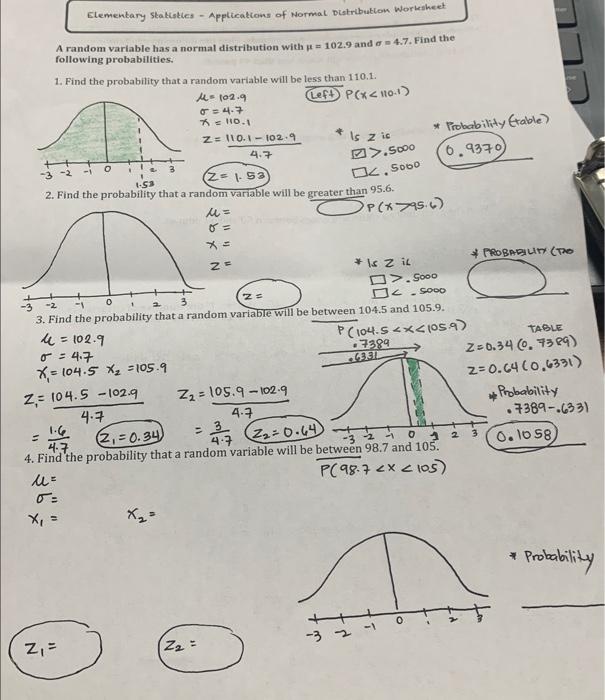 Elementary Statistics - Applications of Normal Distribution Worksheet
A random variable has a normal distribution with μ = 102.9 and σ = 4.7. Find the
following probabilities.
1. Find the probability that a random variable will be less than 110.1.
μ = 102.9
Left P(x < 110.1)
σ = 4.7
x = 110.1
z = 110.1 - 102.9
4.7
* Is z is
☑ > .5000
☐ < .5000
* Probability (table)
0.9370
z = 1.53
-3 -2 -1 0 1 2 3
1.53
2. Find the probability that a random variable will be greater than 95.6.
P(x > 95.6)
μ =
σ =
x =
z =
* Is z is
☐ > .5000
☐ < .5000
* PROBABILITY
z =
-3 -2 -1 0 1 2 3
3. Find the probability that a random variable will be between 104.5 and 105.9.
P(104.5 < x < 105.9)
μ = 102.9
σ = 4.7
x₁ = 104.5 x₂ = 105.9
.7389
.6331
TABLE
z = 0.34 (0.7389)
z = 0.64 (0.6331)
z₁ = 104.5 - 102.9
4.7
z₂ = 105.9 - 102.9
4.7
* Probability
.7389 - .6331
= 1.6
4.7
z₁ = 0.34
= 3
4.7
z₂ = 0.64
-3 -2 -1 0 1 2 3
0.1058
4. Find the probability that a random variable will be between 98.7 and 105.
P(98.7 < x < 105)
μ =
σ =
x₁ = x₂ =
* Probability
-3 -2 -1 0 1 2 3
z₁ =
z₂ =